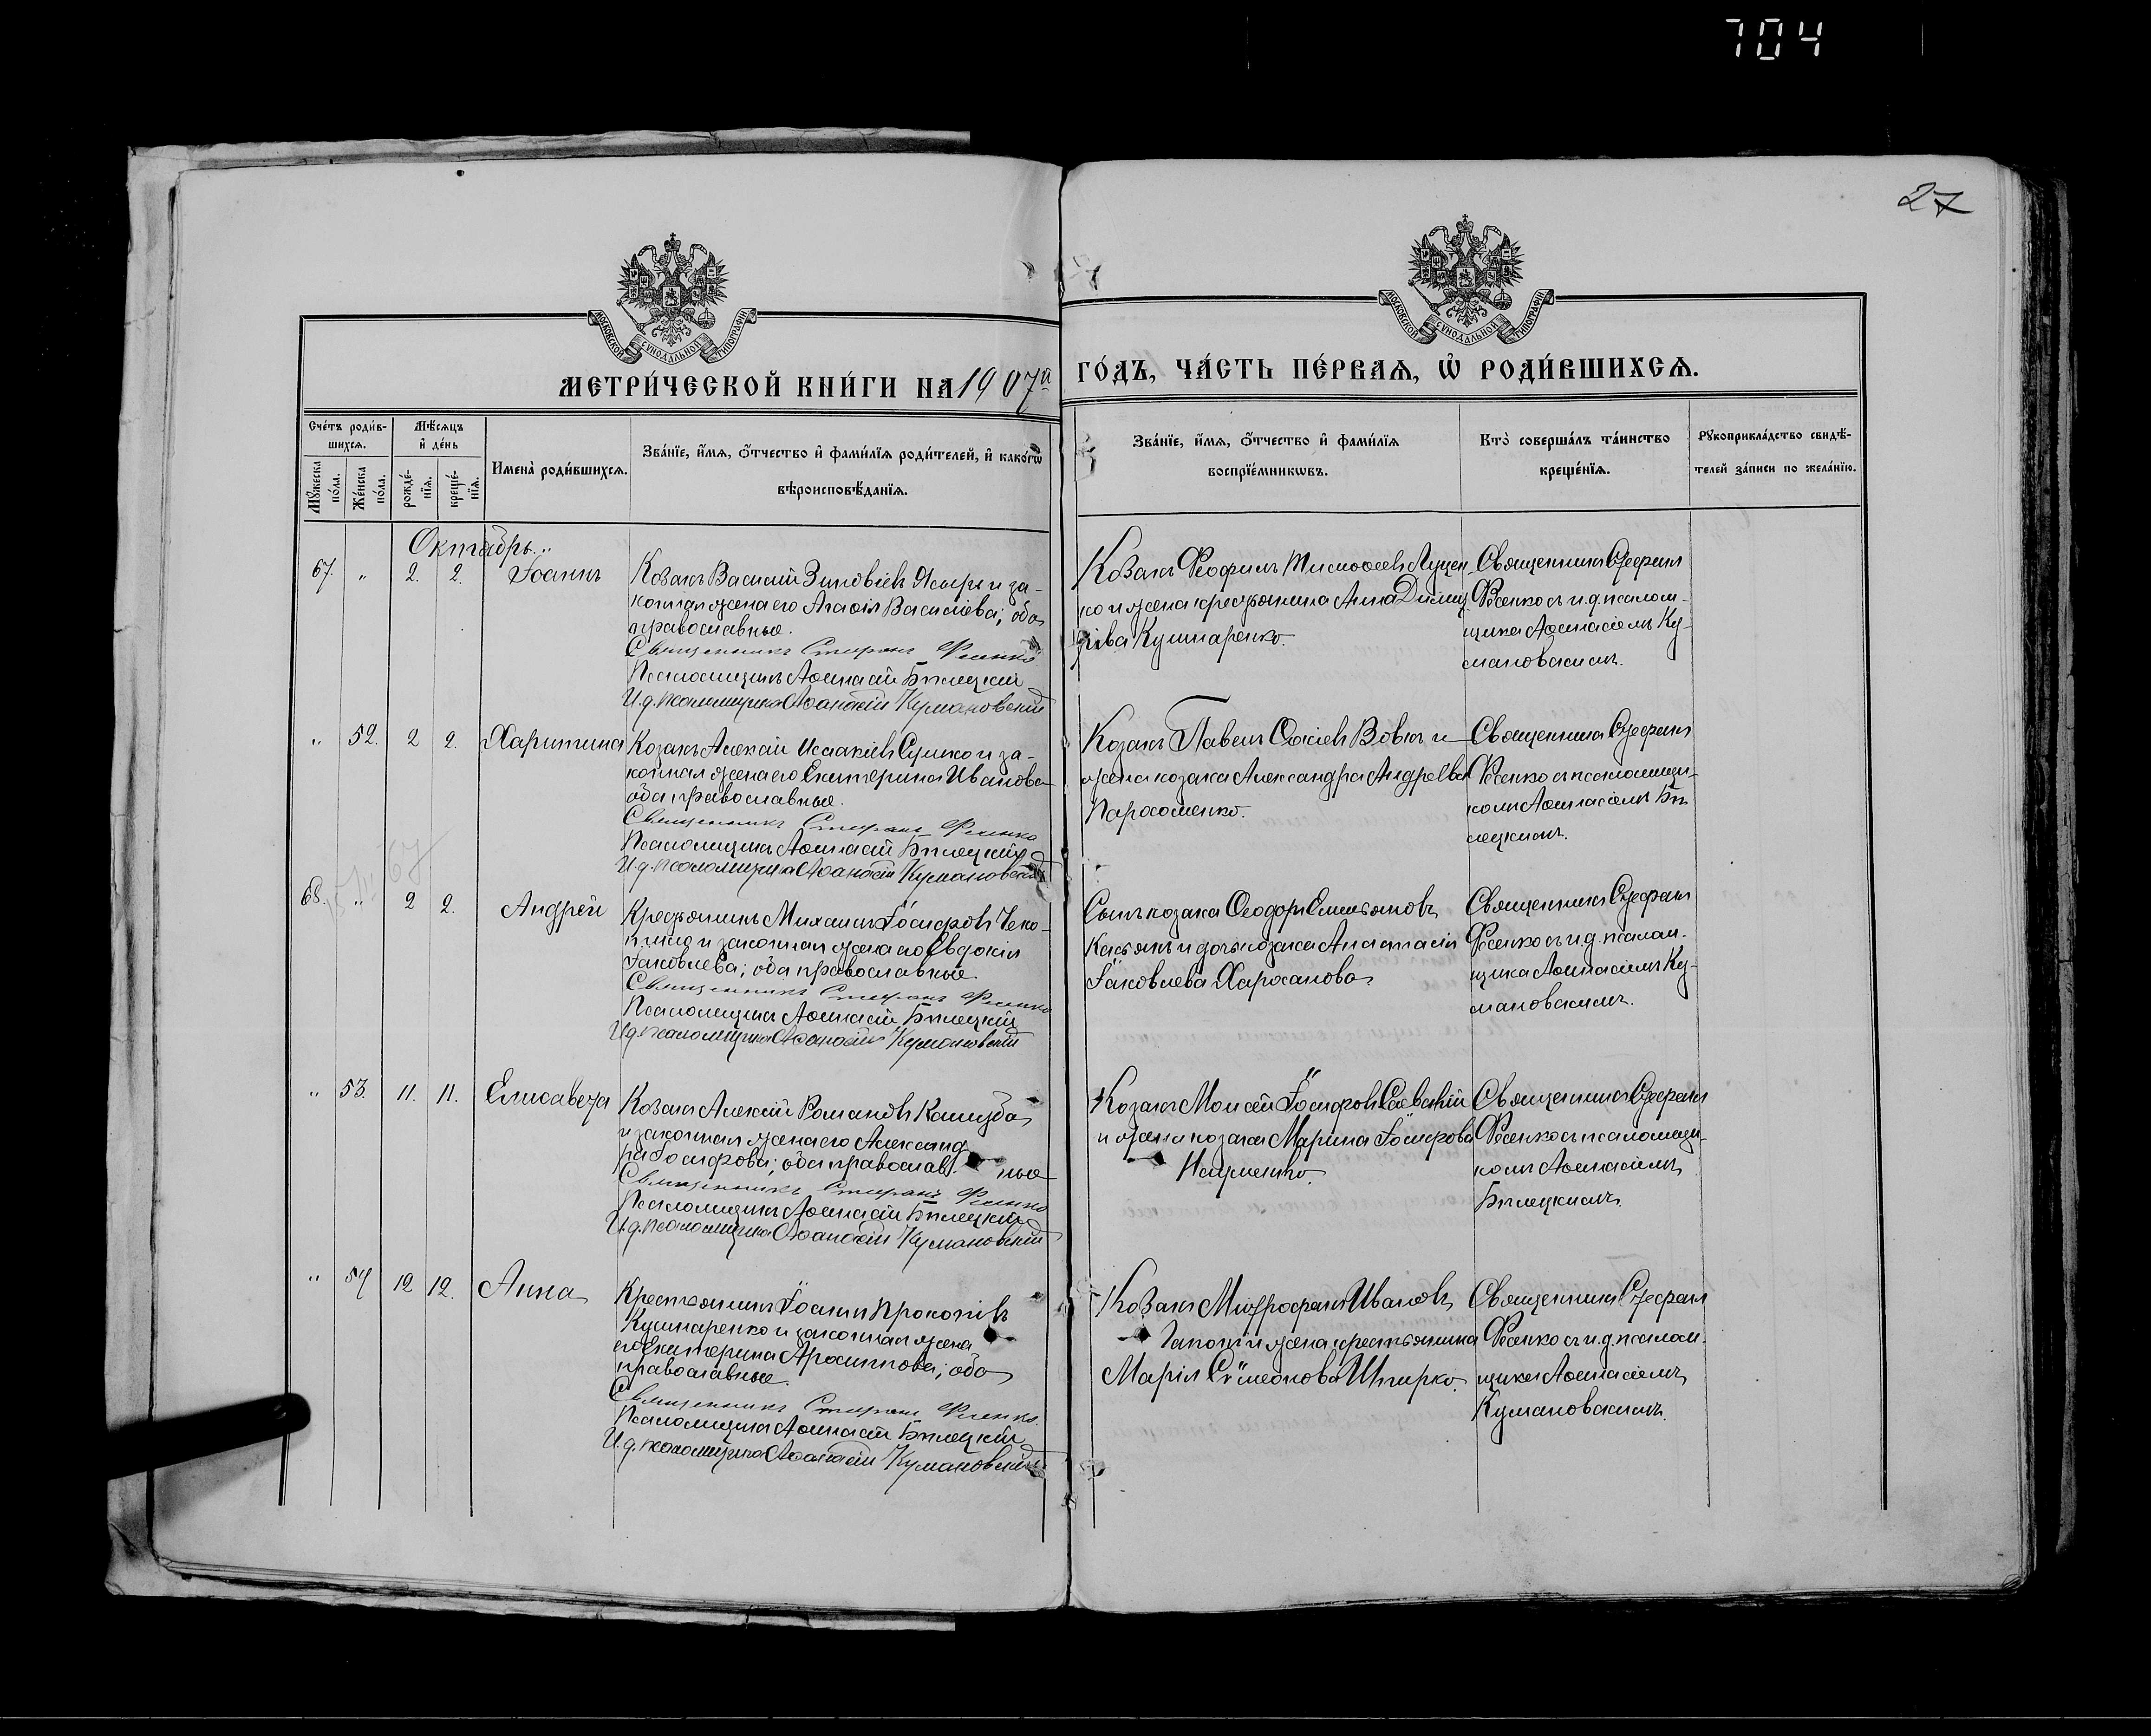 704
27
МОСКОВСКОЙ СУНОДАЛЬНОЙ ТИПОГРАФІИ
МОСКОВСКОЙ СУНОДАЛЬНОЙ ТИПОГРАФІИ
МЕТРИ́ЧЕСКОЙ КНИ́ГИ НА 1907й
ГО́ДЪ, ЧА́СТЬ ПЕ́РВАѦ, Ѡ҆ РОДИ́ВШИХСѦ.
Сче́тъ роди́в-
шихсѧ.
Мꙋ́жеска по́ла.
Же́нска по́ла.
Мѣ́сѧцъ
и҆ де́нь
рожде́-
нїѧ.
креще́-
нїѧ.
Имена̀ роди́вшихсѧ.
Зва́нїе, и҆́мѧ, ѻ҆́тчество и҆ фами́лїѧ роди́телей, и҆ како́гѡ
вѣроисповѣ́данїѧ.
Зва́нїе, и҆́мѧ, ѻ҆́тчество и҆ фами́лїѧ
воспрїе́мникѡвъ.
Кто̀ соверша́лъ та́инство
креще́нїѧ.
Рꙋкоприкла́дство свидѣ́-
телей за́писи по жела́нїю.
Октябрь.
67. " 2. 2. Іоаннъ
Козакъ Василій Зиновіевъ и за-
конная жена его Агафія Васильева; оба
православные.
Священникъ Стефанъ Ѳеенко
Псаломщикъ Аѳанасій Бѣлецкій
И.д. псаломщика Аѳанасій Кумановскій
Козакъ Ѳеофилъ Тимоѳеевъ Луцен
ко и жена крестьянина Анна Димит
ріева Кушнаренко.
Священникъ Стефанъ
Ѳеенко съ и.д. псалом-
щика Аѳанасіемъ Ку-
мановскимъ.
" 52. 2 2. Харитина
Козакъ Алексій Исаакіевъ Сушко и за-
конная жена его Екатерина Иванова
оба православные.
Священникъ Стефанъ Ѳеенко
Псаломщикъ Аѳанасій Бѣлецкій
И.д. псаломщика Аѳанасій Кумановскій
Козакъ Павелъ Вовкъ и
жена козака Александра Андреева
Пархоменко.
Священникъ Стефанъ
Ѳеенко съ псаломщи-
комъ Аѳанасіемъ Бѣ
лецкимъ.
68. " 2 2. Андрей
Крестьянинъ Михаилъ Іосифовъ
и законная жена его Евдокія
Іаковлева; оба православные.
Священникъ Стефанъ Ѳеенко
Псаломщикъ Аѳанасій Бѣлецкій
И.д. псаломщика Аѳанасій Кумановскій
Сынъ козака Ѳеодоръ Емельяновъ
Касьянъ и дочь козака Анастасія
Іаковлева
Священникъ Стефанъ
Ѳеенко съ и.д. псалом-
щика Аѳанасіемъ Ку-
мановскимъ.
" 53. 11. 11. Елисавета
Козакъ Алексій Романовъ
и законная жена его Александ
ра Іосифова; оба православ- ные
Священникъ Стефанъ Ѳеенко
Псаломщикъ Аѳанасій Бѣлецкій
И.д. псаломщика Аѳанасій Кумановскій
Козакъ Моисей Іосифовъ
и жена козака Марина Іосифова
Науменко.
Священникъ Стефанъ
Ѳеенко съ псаломщи-
комъ Аѳанасіемъ
Бѣлецкимъ.
" 54 12 12. Анна
Крестьянинъ Іоаннъ Прокопіевъ
Кушнаренко и законная жена
его Екатерина Архиппова; оба
православные.
Священникъ Стефанъ Ѳеенко.
Псаломщикъ Аѳанасій Бѣлецкій
И.д. псаломщика Аѳанасій Кумановскій
Козакъ Митрофанъ Ивановъ
Гапонъ и жена крестьянина
Марія Сѵмеонова Шпирко.
Священникъ Стефанъ
Ѳеенко съ и.д. псалом-
щика Аѳанасіемъ
Кумановскимъ.